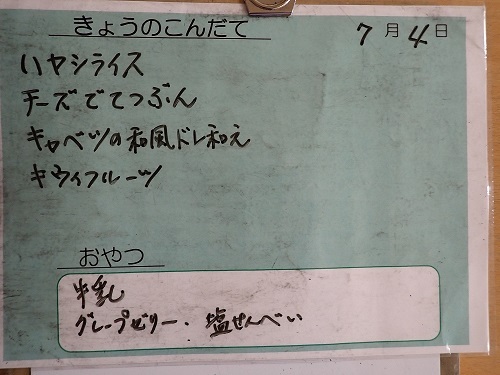 きょうのこんだて 7月4日
ハヤシライス
チーズでてつぶん
キャベツの和風ドレ和え
キウイフルーツ
おやつ
牛乳
グレープゼリー・塩せんべい